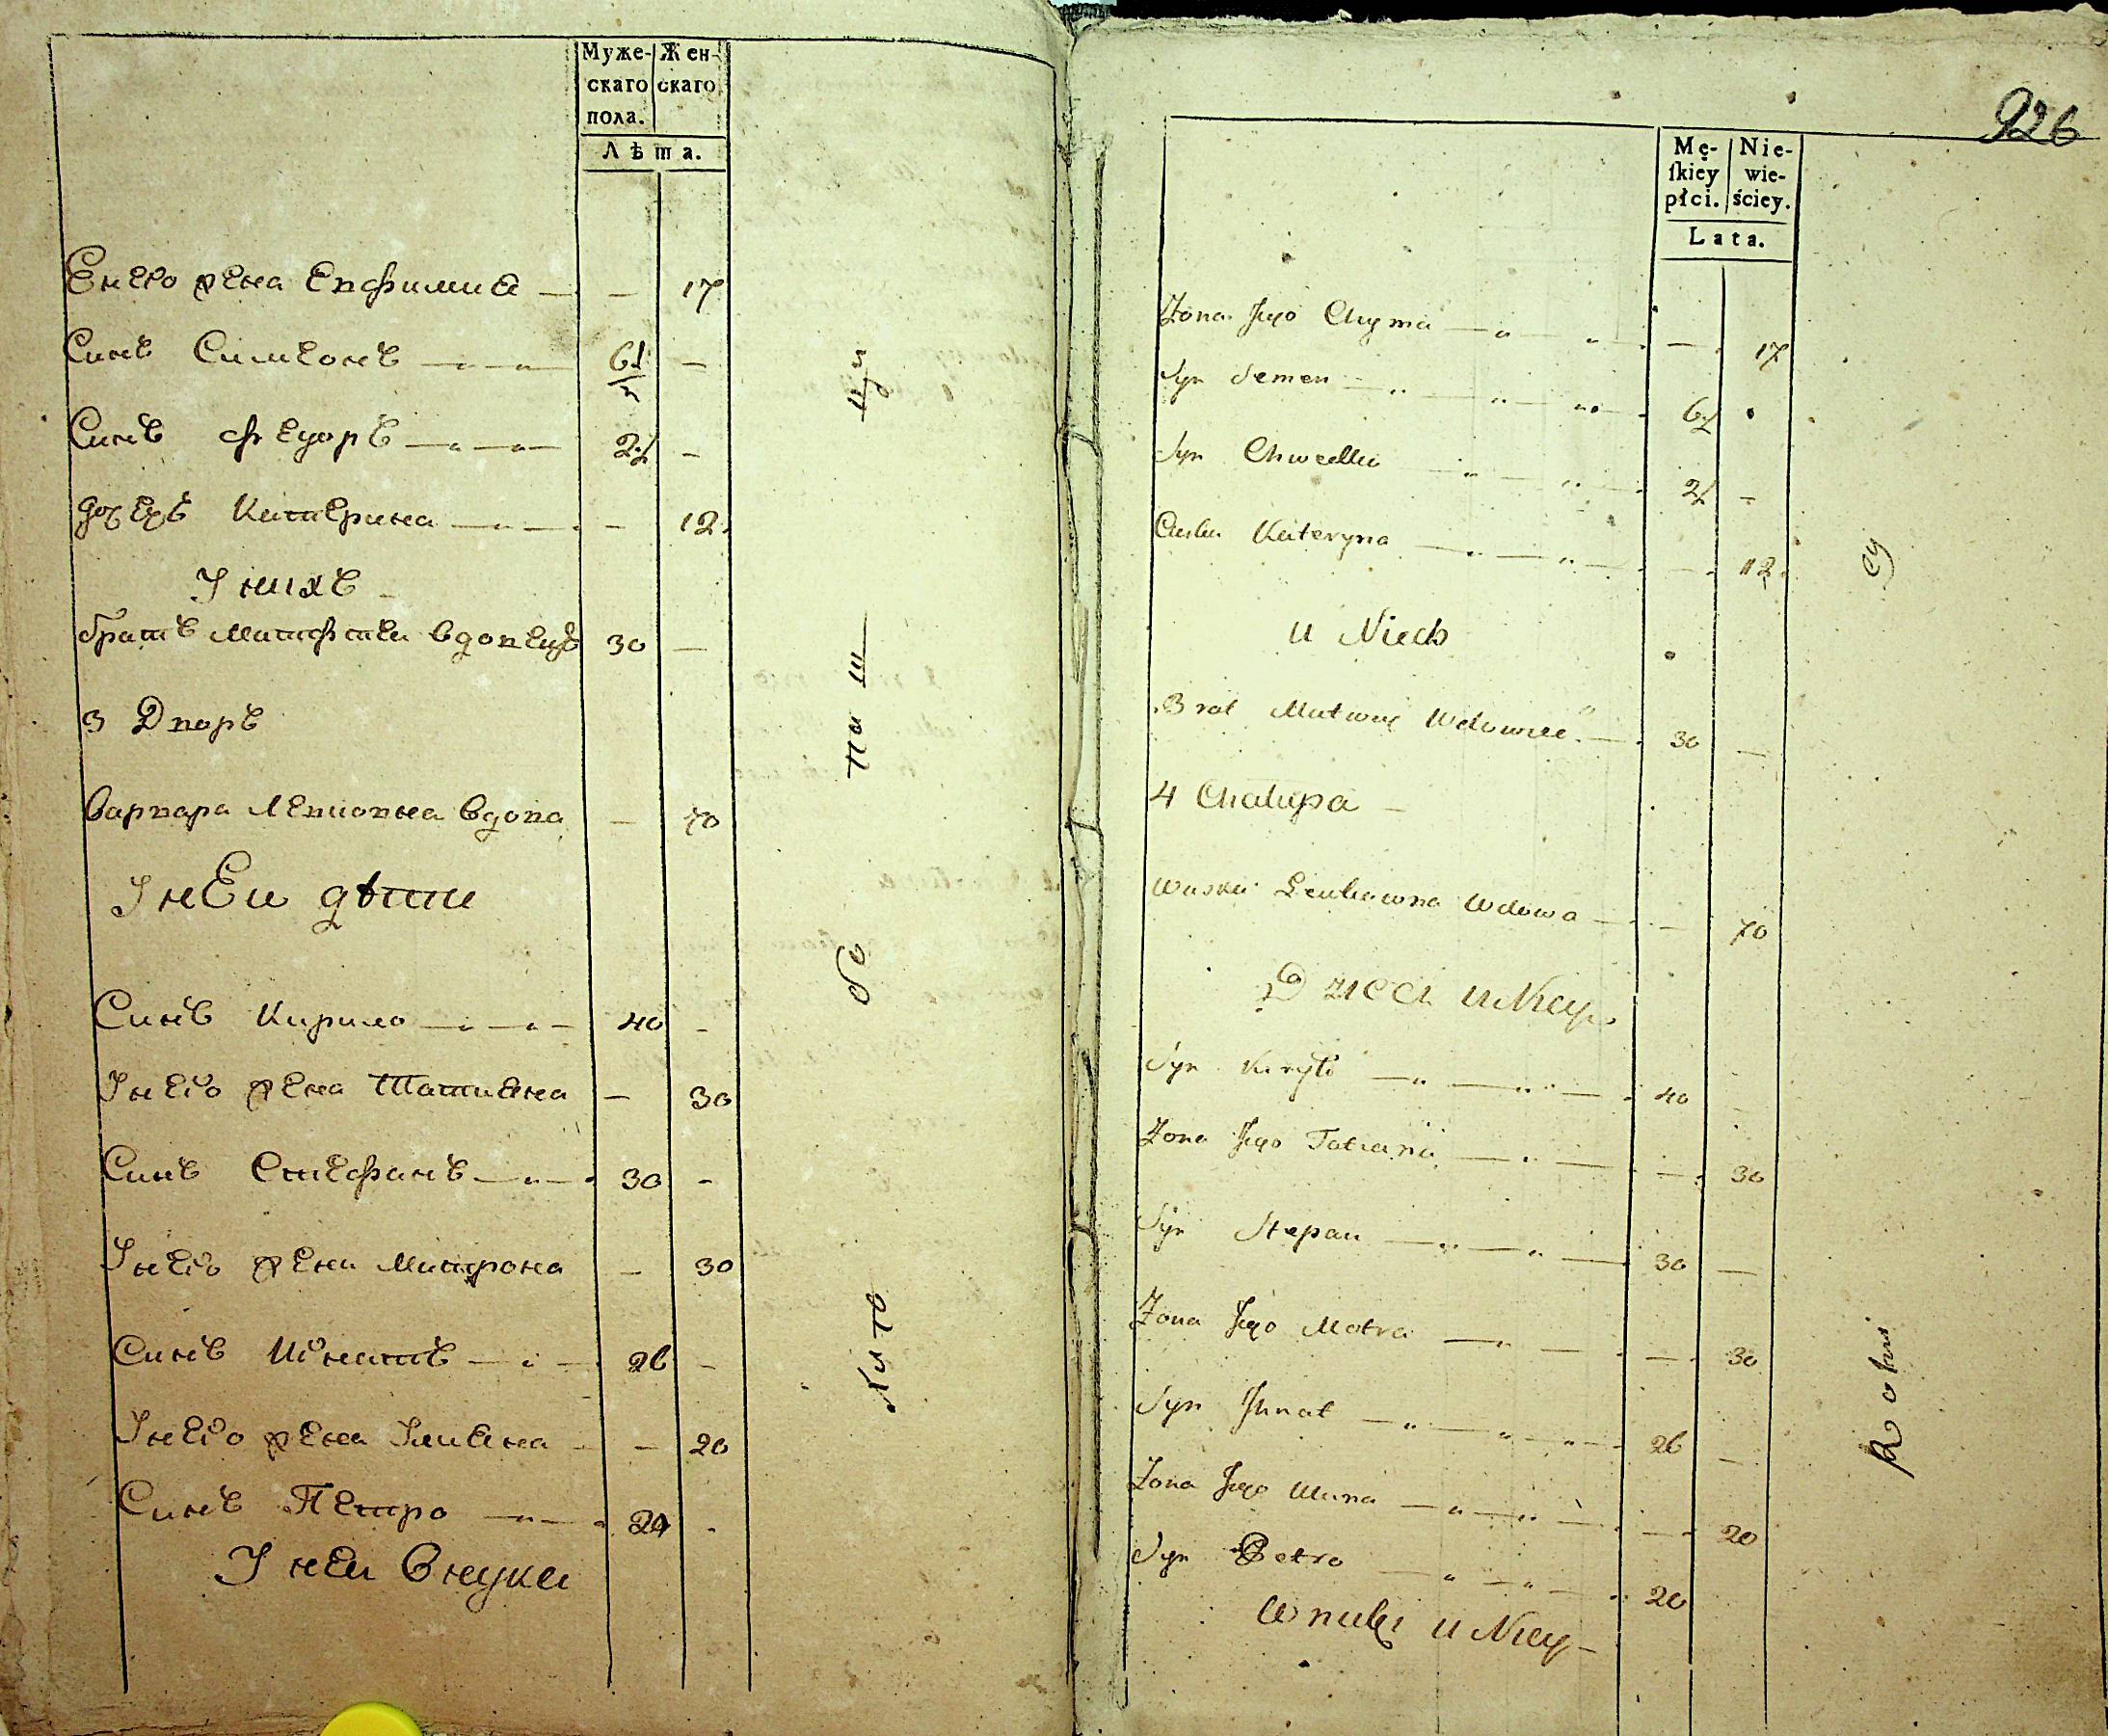 Муже- Жен-
скаго скаго
пола.
Лѣта.
Енего жена Евфимиа — — 17
Синъ Симеонъ — 6½ —
Синъ Федоръ — 2½ —
дочеръ Катерина — — 12
У нихъ
братъ Матфтеи вдовецъ 30 —
3 Дворъ
Варвара Левковна вдова — 70
У неи дѣти
Синъ Кирило — 40 —
У него жена Татиана — 30
Синъ Стефанъ — 30 —
У него жена Матрона — 30
Синъ Игнатъ — 26 —
У него жена Улиана — 20
Синъ Петро — 20 -
У неи Внуки
926
Mę- Nie-
ſkiey wie-
płci. ściey.
Lata.
Żona Jego Chyma — — 17
Syn Semen — 6½
Syn Chwedko — 2½ —
Curka Kateryna — — 12
u Nich
Brat Matwiey Wdowiec — 30 —
4 Chalupa —
Waska Leukowna Wdowa — — 70
Dzieci u Niey
Syn Kiryło — 40 —
Żona Jego Tatiana — — 30
Syn Stepan — 30 —
Żona Jego Motra — — 30
Syn Ihnat — 26 —
Żona Jego Ulana — — 20
Syn Petro — 20
Wnuki u Niey —